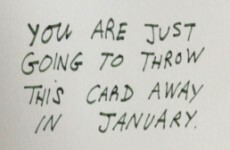 YOU ARE JUST
GOING TO THROW
THIS CARD AWAY
IN JANUARY.